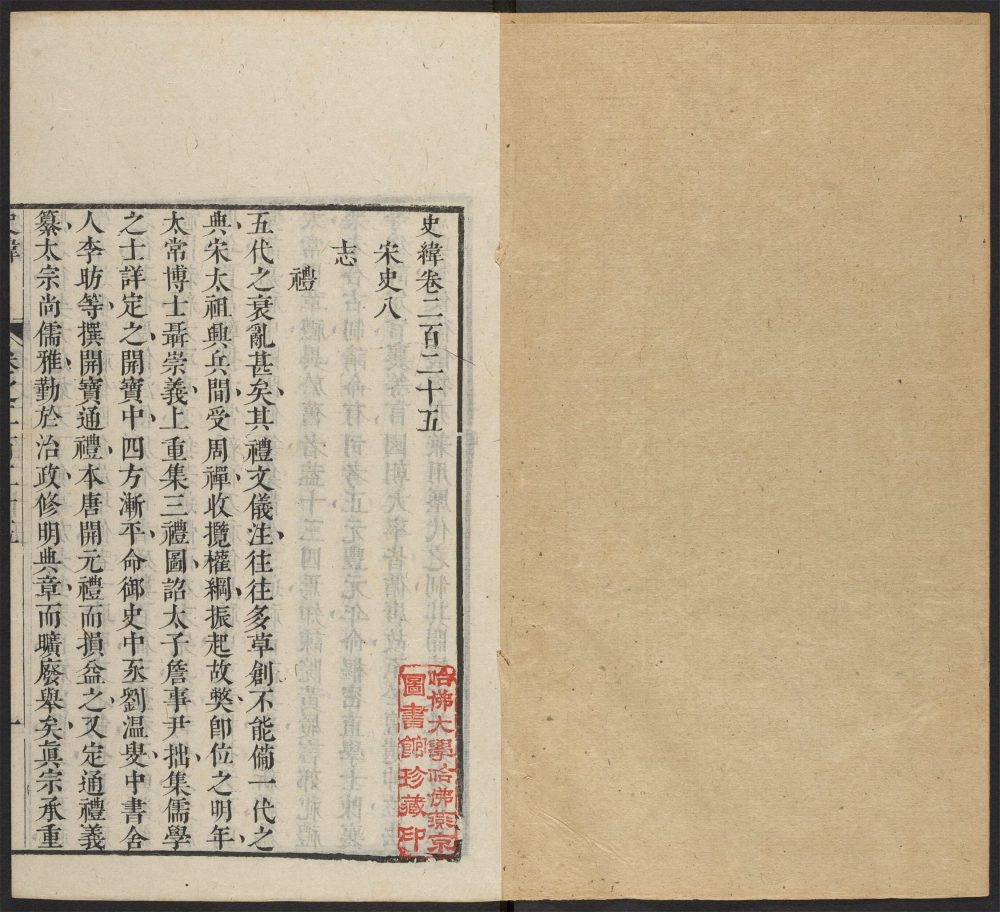 史緯卷二百二十五
宋史八
志
禮
五代之衰亂甚矣其禮文儀注往往多草創不能備一代之
典宋太祖興兵間受周禪收攬權綱振起故弊卽位之明年
太常博士聶崇義上重集三禮圖詔太子詹事尹拙集儒學
之士詳定之開寶中四方漸平命御史中丞劉溫叟中書舍
人李昉等撰開寶通禮本唐開元禮而損益之又定通禮義
纂太宗尚儒雅勤於治政修明典章而曠廢舉矣眞宗承重
史緯
卷之二百二十五
一
哈佛大學哈佛燕京
圖書館珍藏印